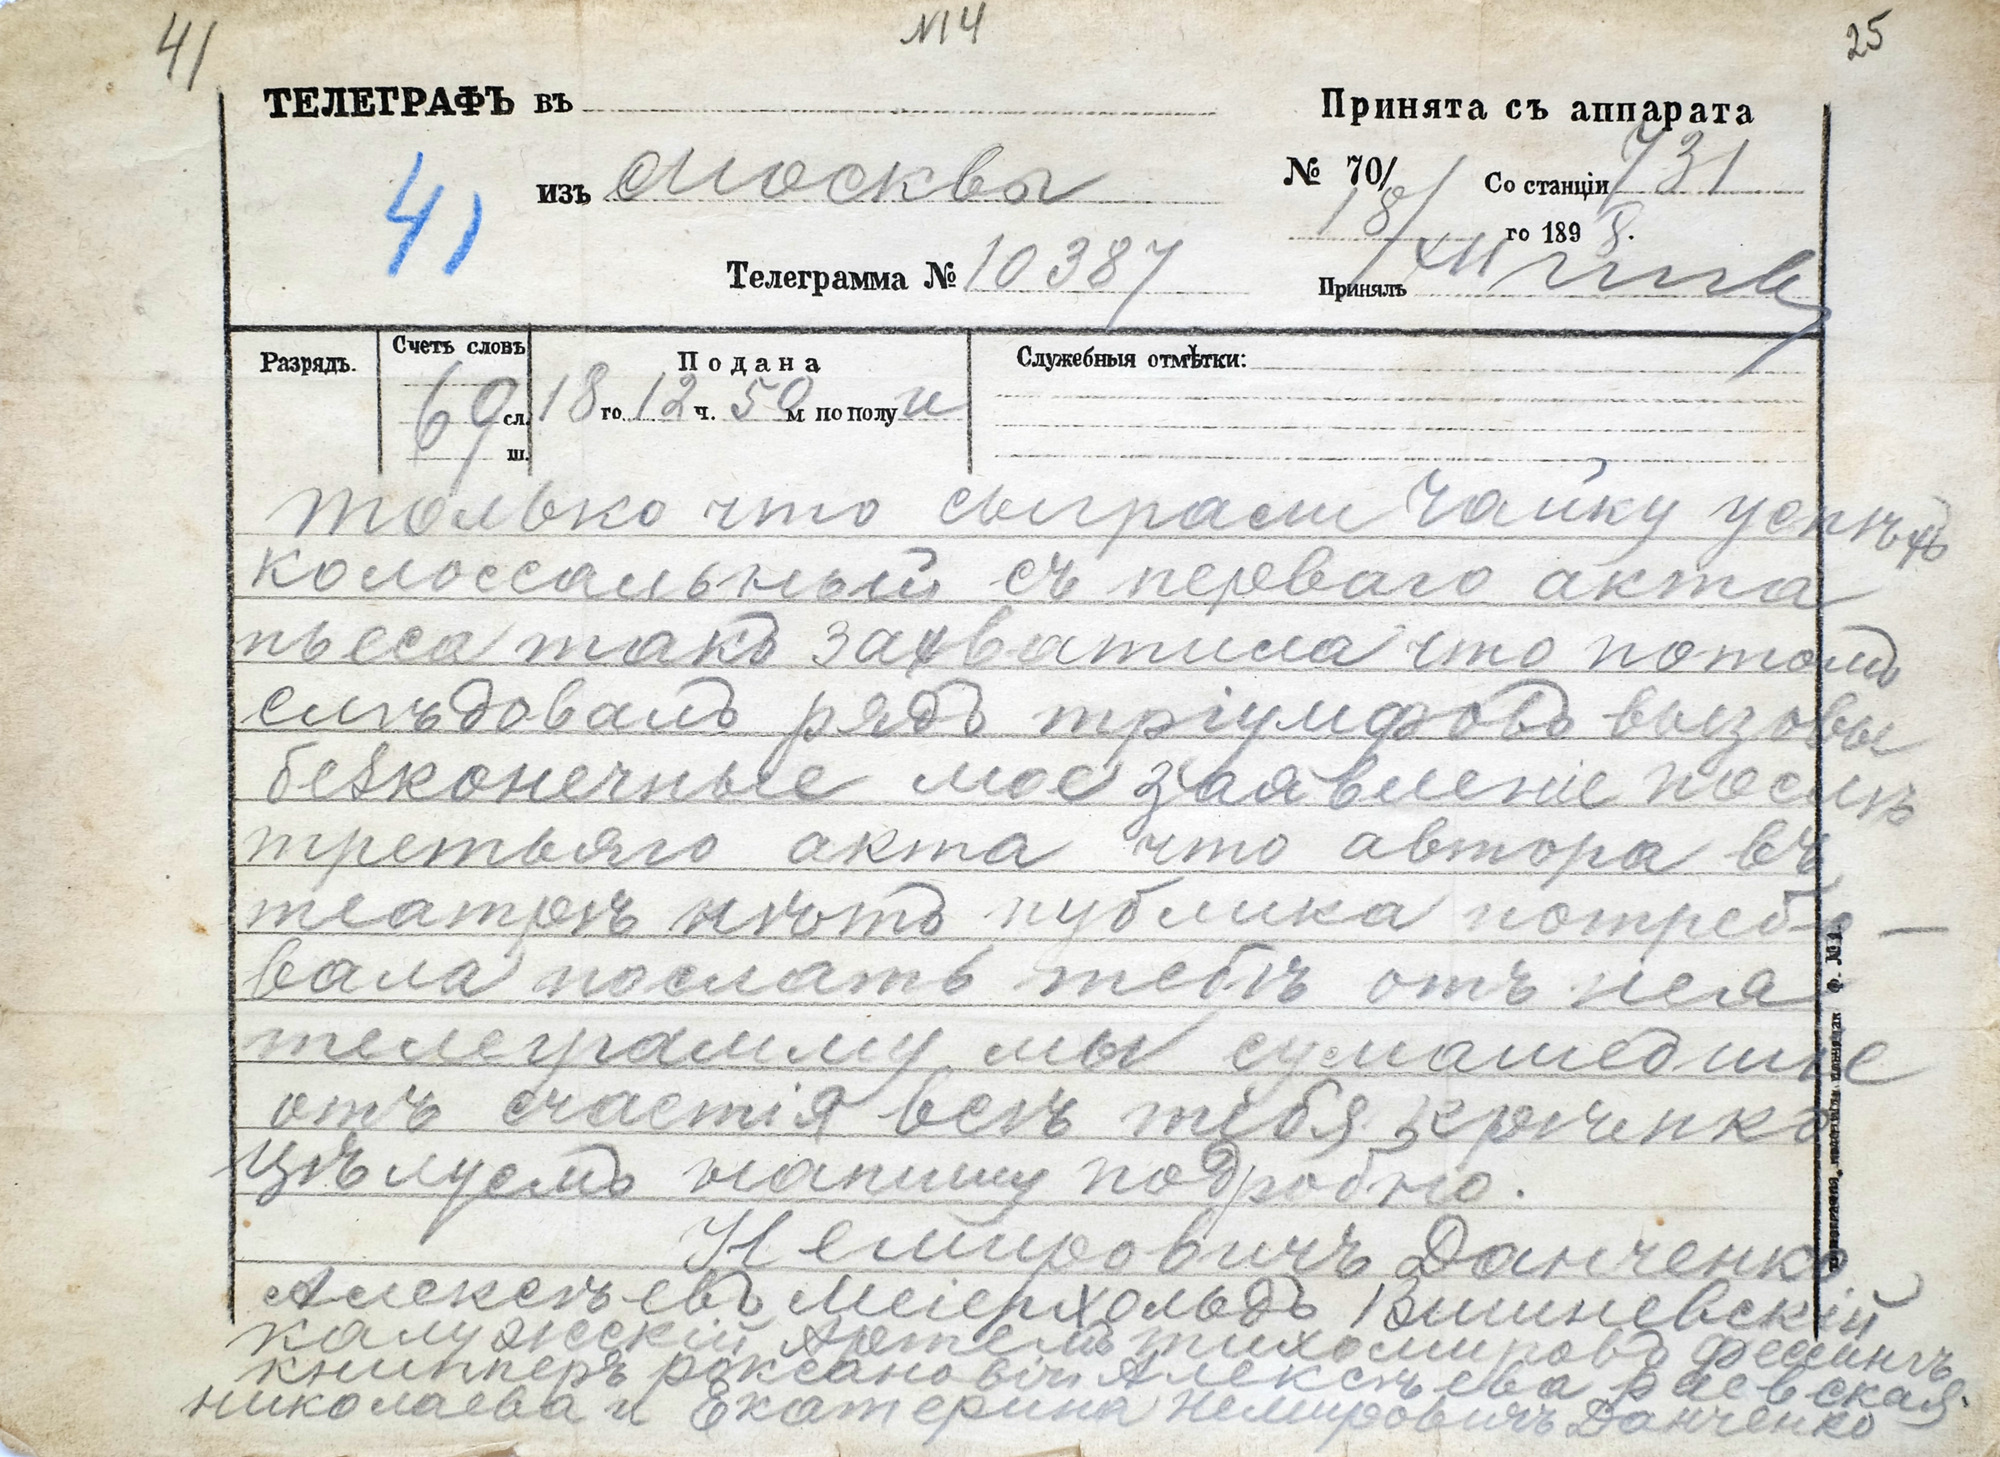 41
№14
25
ТЕЛЕГРАФЪ въ
Принята съ аппарата
41
изъ Москвы
№ 70/
Со станціи 731
18/XII го 1898.
Телеграмма № 10387
Принялъ
Разрядъ.
Счетъ словъ
69 сл.
ш.
Подана
18 го 12 ч. 50 м по полу н
Служебныя отмѣтки:
только что сыграли Чайку успѣхъ
колоссальный съ перваго акта
пьеса такъ захватила что потомъ
слѣдовалъ рядъ тріумфовъ вызовы
безконечные мое заявленіе послѣ
третьяго акта что автора въ
театрѣ нѣтъ публика потребо-
вала послать тебѣ отъ нея
телеграмму мы сумашедшіе
отъ счастія всѣ тебя крѣпко
цѣлуемъ напишу подробно.
Немировичъ Данченко
Алексѣевъ Меіерхольдъ Вишневскій
калужскій Артемъ тихомировъ Фесингъ
книпперъ роксановій Алексѣева раевская
николаева и Екатерина немировичъ Данченко